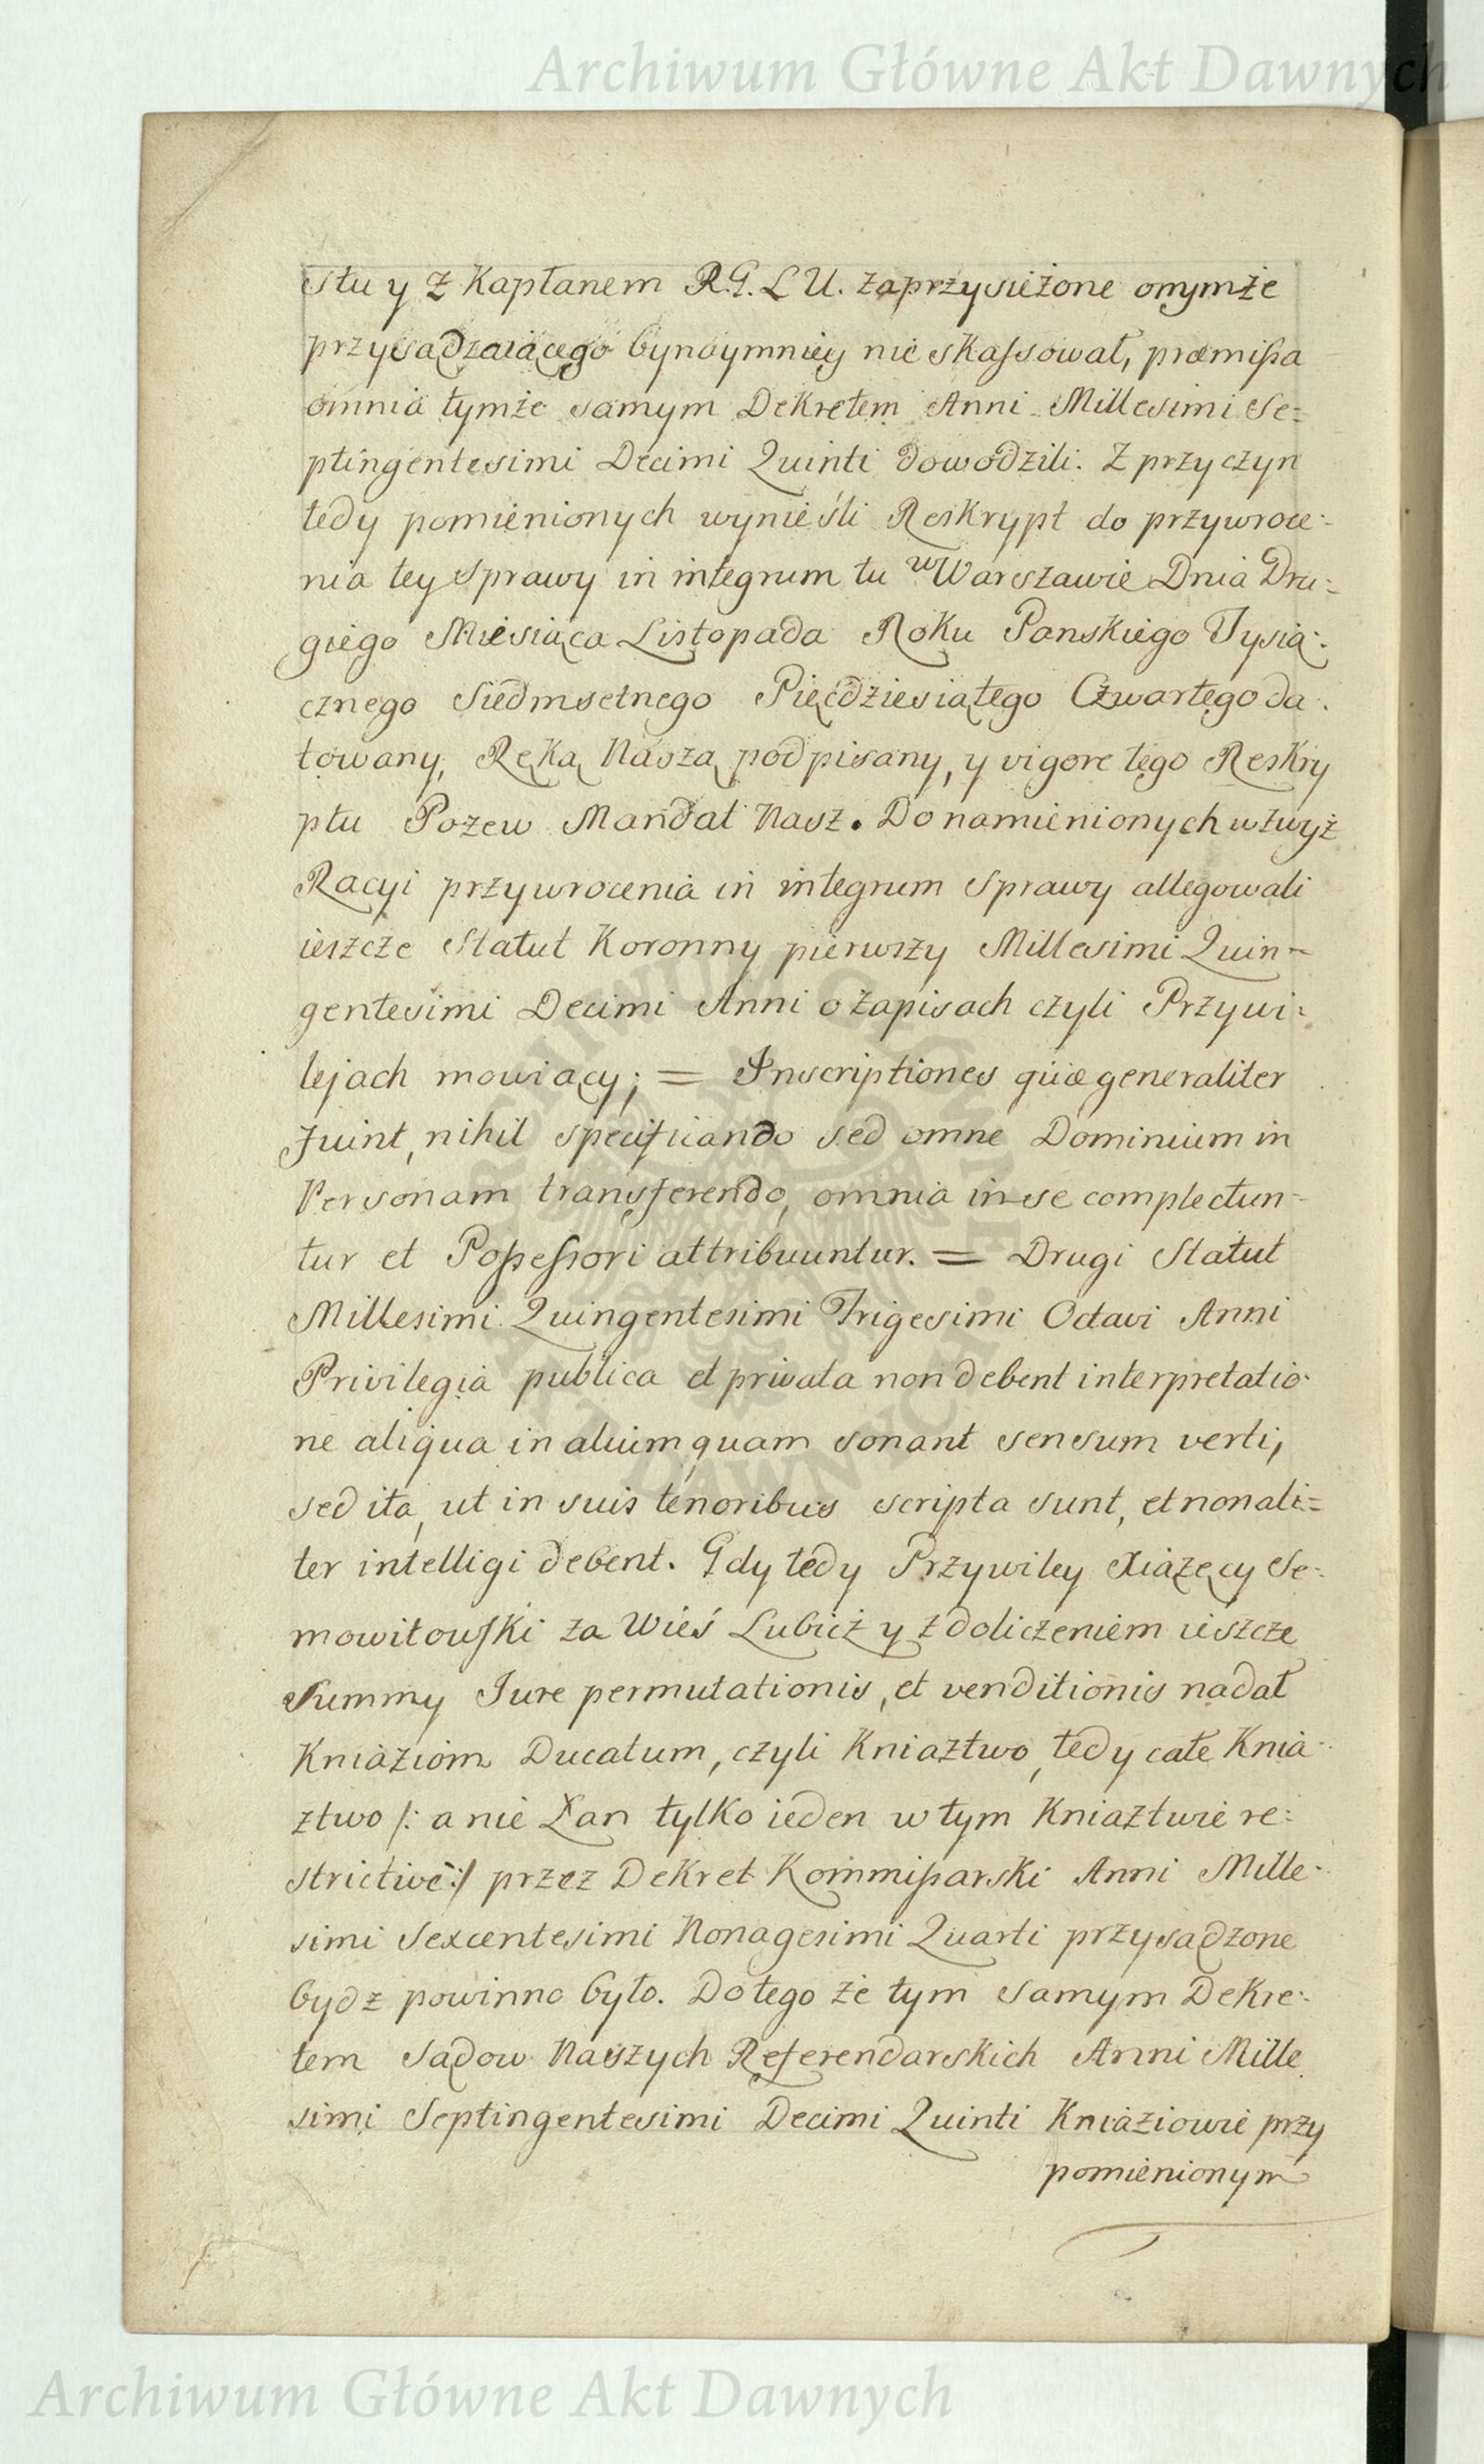 Archiwum Główne Akt Dawnych
stu y z Kapłanem R.G.L U. zaprzysieżone onymże
przysądzaiącego bynaymniey nie skassował, præmissa
omnia tymże samym Dekretem Anni Millesimi Se=
ptingentesimi Decimi Quinti dowodzili. Z przyczyn
tedy pomienionych wynieśli Reskrypt do przywroce=
nia tey sprawy in integrum tu w Warszawie Dnia Dru=
giego Miesiąca Listopada Roku Panskiego Tysią=
cznego Siedmsetnego Pięcdziesiątego Czwartego da=
towany, Ręką Naszą podpisany, y vigore tego Reskry
ptu Pozew Mandat Nasz. Do namienionych wzwyż
Racyi przywrocenia in integrum sprawy allegowali
ieszcze Statut Koronny pierwszy Millesimi Quin=
gentesimi Decimi Anni o zapisach czyli Przywi=
lejach mowiący; = Inscriptiones quæ generaliter
fuint, nihil specificando sed omne Dominium in
Personam transferendo, omnia in se complectun=
tur et Possessori attribuuntur. = Drugi Statut
Millesimi Quingentesimi Trigesimi Octavi Anni
Privilegia publica et privata non debent interpretatio=
ne aliqua in alium quam sonant sensum verti,
sed ita, ut in suis tenoribus scripta sunt, et non ali=
ter intelligi debent. Gdy tedy Przywiley Xiążęcy Se=
mowitowski za Wieś Lubicz y z doliczeniem ieszcze
Summy Jure permutationis, et venditionis nadał
Kniaziom Ducatum, czyli Kniaztwo, tedy całe Knia=
ztwo /: a nie Łan tylko ieden w tym Kniaztwie re=
strictivè :/ przez Dekret Kommissarski Anni Mille=
simi Sexcentesimi Nonagesimi Quarti przysądzone
bydz powinno było. Do tego że tym samym Dekre=
tem Sądow Naszych Referendarskich Anni Mille
simi Septingentesimi Decimi Quinti Kniaziowie przy
pomienionym
Archiwum Główne Akt Dawnych